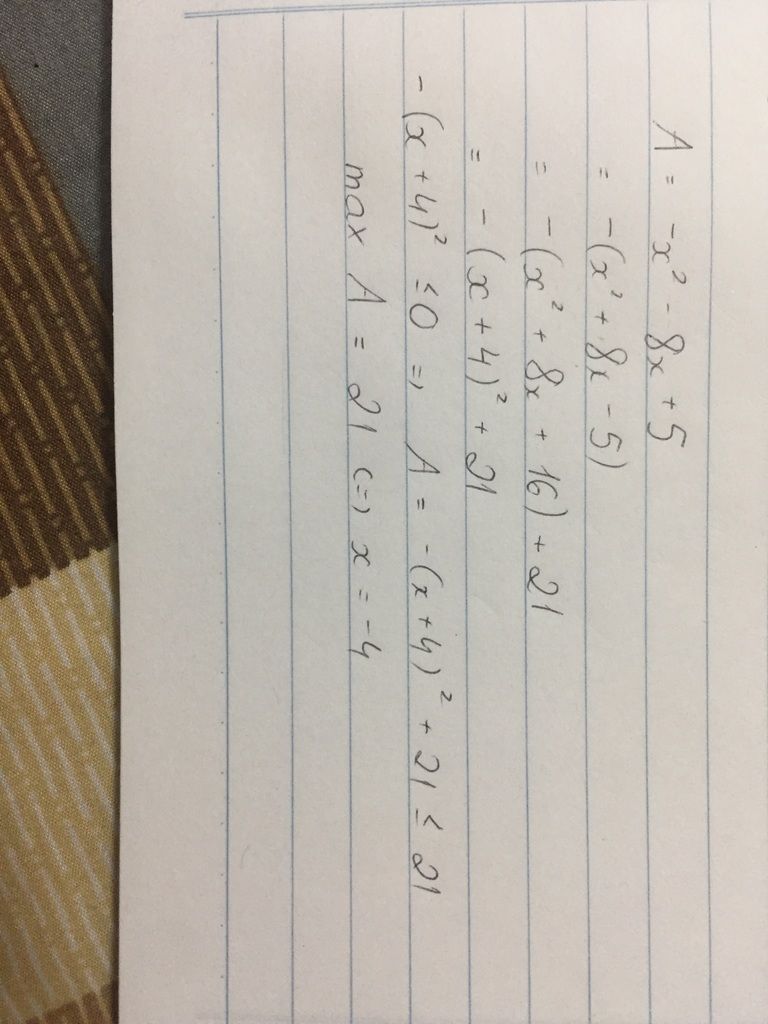 A = -x² - 8x + 5
= -(x² + 8x - 5)
= -(x² + 8x + 16) + 21
= -(x + 4)² + 21
-(x + 4)² ≤ 0 => A = -(x + 4)² + 21 ≤ 21
max A = 21 (=) x = -4